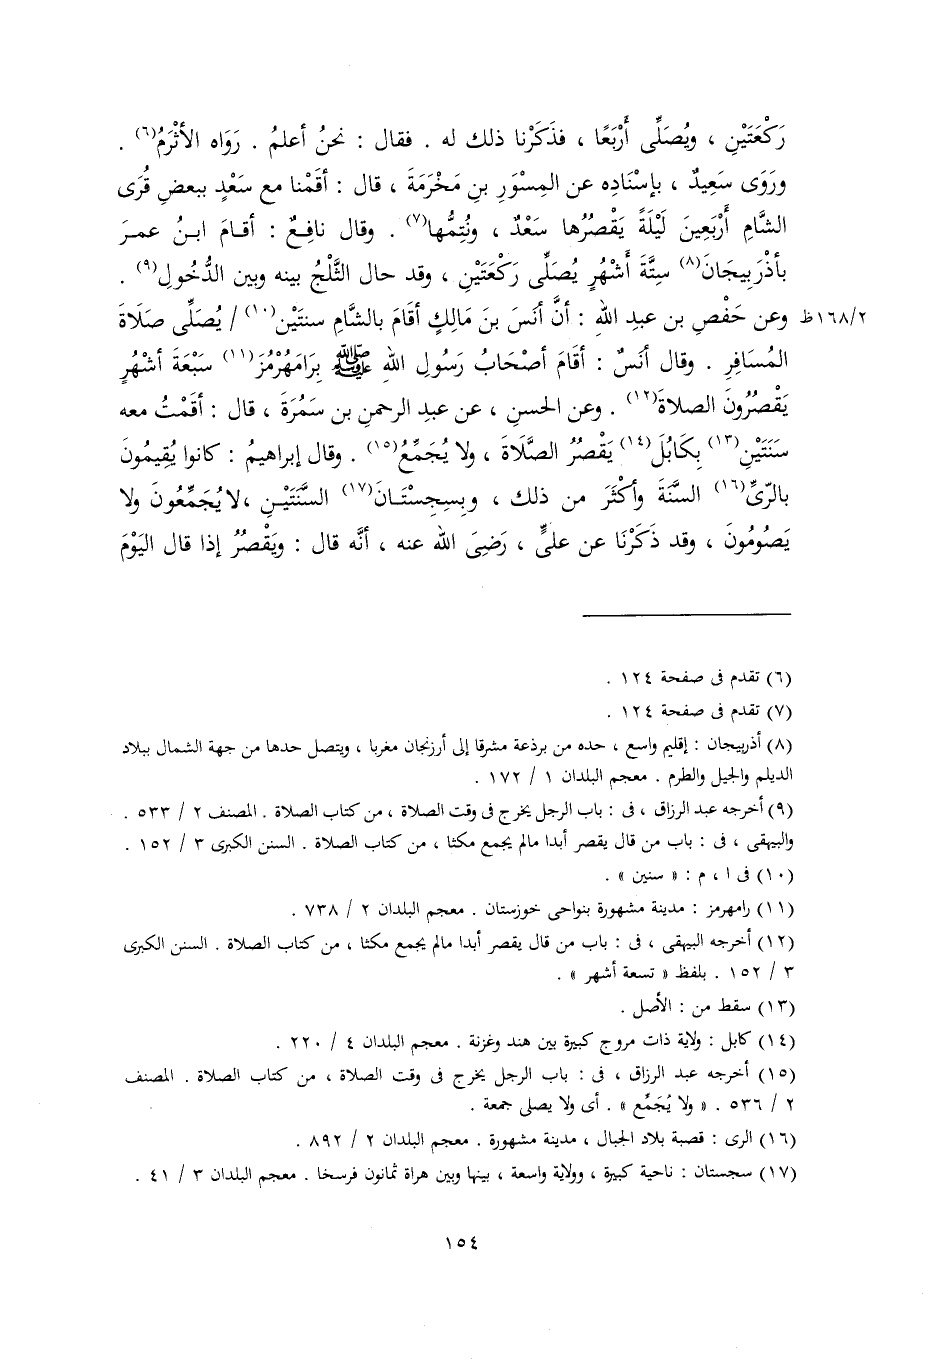 رَكْعَتَيْنِ ، ويُصَلِّى أَرْبَعًا ، فذَكَرْنا ذلك له . فقال : نحنُ أعلمُ . رَوَاه الأَثْرَمُ(٦) .
ورَوَى سَعِيدٌ ، بإسْنَادِه عن المِسْوَرِ بنِ مَخْرَمَةَ ، قال : أقَمْنا مع سَعْدٍ ببعضِ قُرَى
الشَّامِ أَرْبَعِينَ لَيْلَةً يَقْصُرُها سَعْدٌ ، ونُتِمُّها(٧) . وقال نافِعٌ : أقامَ ابنُ عمرَ
بأذْرَبِيجَانَ(٨) سِتَّةَ أَشْهُرٍ يُصَلِّى رَكْعَتَيْنِ ، وقد حال الثَّلْجُ بينه وبين الدُّخُولِ(٩) .
وعن حَفْصِ بن عبدِ اللهِ : أنَّ أنَسَ بنَ مَالِكٍ أقَامَ بالشَّامِ سنتَيْن(١٠) / يُصَلِّى صَلَاةَ ١٦٨/٢ظ
المُسَافِرِ . وقال أنَسٌ : أقَامَ أصْحَابُ رَسُولِ اللهِ ﷺ بِرَامَهُرْمُزَ(١١) سَبْعَةَ أشْهُرٍ
يَقْصُرُونَ الصلاةَ(١٢) . وعن الحسنِ ، عن عبدِ الرحمنِ بن سَمُرَةَ ، قال : أقَمْتُ معه
سَنَتَيْنِ(١٣) بِكَابُلَ(١٤) يَقْصُرُ الصَّلَاةَ ، ولا يُجَمِّعُ(١٥) . وقال إبراهيمُ : كانوا يُقِيمُونَ
بالرَّىِّ(١٦) السَّنَةَ وأكْثَرَ من ذلك ، وبِسِجِسْتَانَ(١٧) السَّنَتَيْنِ ، لا يُجَمِّعُونَ ولا
يَصُومُونَ ، وقد ذَكَرْنَا عن علىٍّ ، رَضِىَ اللهُ عنه ، أنَّه قال : ويَقْصُرُ إذا قال اليَوْمَ
(٦) تقدم فى صفحة ١٢٤ .
(٧) تقدم فى صفحة ١٢٤ .
(٨) أذربيجان : إقليم واسع ، حده من برذعة مشرقا إلى أرزنجان مغربا ، ويتصل حدها من جهة الشمال ببلاد
الديلم والجيل والطرم . معجم البلدان ١ / ١٧٢ .
(٩) أخرجه عبد الرزاق ، فى : باب الرجل يخرج فى وقت الصلاة ، من كتاب الصلاة . المصنف ٢ / ٥٣٣ .
والبيهقى ، فى : باب من قال يقصر أبدا مالم يجمع مكثا ، من كتاب الصلاة . السنن الكبرى ٣ / ١٥٢ .
(١٠) فى ا ، م : « سنين » .
(١١) رامهرمز : مدينة مشهورة بنواحى خوزستان . معجم البلدان ٢ / ٧٣٨ .
(١٢) أخرجه البيهقى ، فى : باب من قال يقصر أبدا مالم يجمع مكثا ، من كتاب الصلاة . السنن الكبرى
٣ / ١٥٢ . بلفظ « تسعة أشهر » .
(١٣) سقط من : الأصل .
(١٤) كابل : ولاية ذات مروج كبيرة بين هند وغزنة . معجم البلدان ٤ / ٢٢٠ .
(١٥) أخرجه عبد الرزاق ، فى : باب الرجل يخرج فى وقت الصلاة ، من كتاب الصلاة . المصنف
٢ / ٥٣٦ . « ولا يُجَمِّع » . أى ولا يصلى جمعة .
(١٦) الرى : قصبة بلاد الجبال ، مدينة مشهورة . معجم البلدان ٢ / ٨٩٢ .
(١٧) سجستان : ناحية كبيرة ، وولاية واسعة ، بينها وبين هراة ثمانون فرسخا . معجم البلدان ٣ / ٤١ .
١٥٤